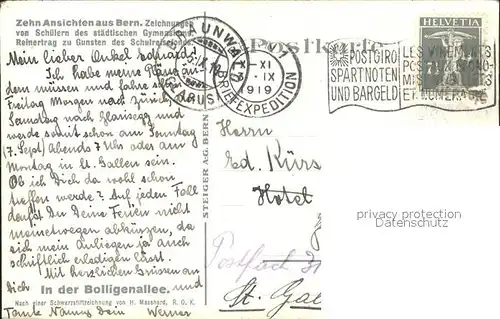 Zehn Ansichten aus Bern. Zeichnungen
von Schülern des städtischen Gymnasiums
Reinertrag zu Gunsten des Schulreisefonds.
Postkarte
Mein lieber Onkel Eduard!
Ich habe meine Pläne än-
dern müssen und fahre schon
Freitag Morgen nach Zürich,
Samstag nach
werde somit schon am Sonntag
(7. Sept) Abends 7 Uhr oder am
Montag in St. Gallen sein.
Ob ich Dich da wohl schon
treffen werde? Auf jeden Fall
darfst Du Deine Ferien nicht
meinetwegen abkürzen, da
sich mein Anliegen ja auch
schriftlich erledigen lässt.
Mit herzlichen Grüssen an
Dich und
In der Bolligenallee.
Nach einer Schwarzstiftzeichnung von H. Masshard, R. O. K.
Tante Nanny Dein Werner
STEIGER A.G. BERN
BRAUNWALD
BRIEFEXPEDITION
XI
IX
1919
POSTGIRO
SPART NOTEN
UND BARGELD
LES VIREMENTS
POSTAUX ÉCONO-
MISENT BILLETS
ET NUMÉRAIRE
HELVETIA
7½
Herrn
Ed. Kürs
Hotel
Postfach 31
St. Ga
privacy protection
Datenschutz